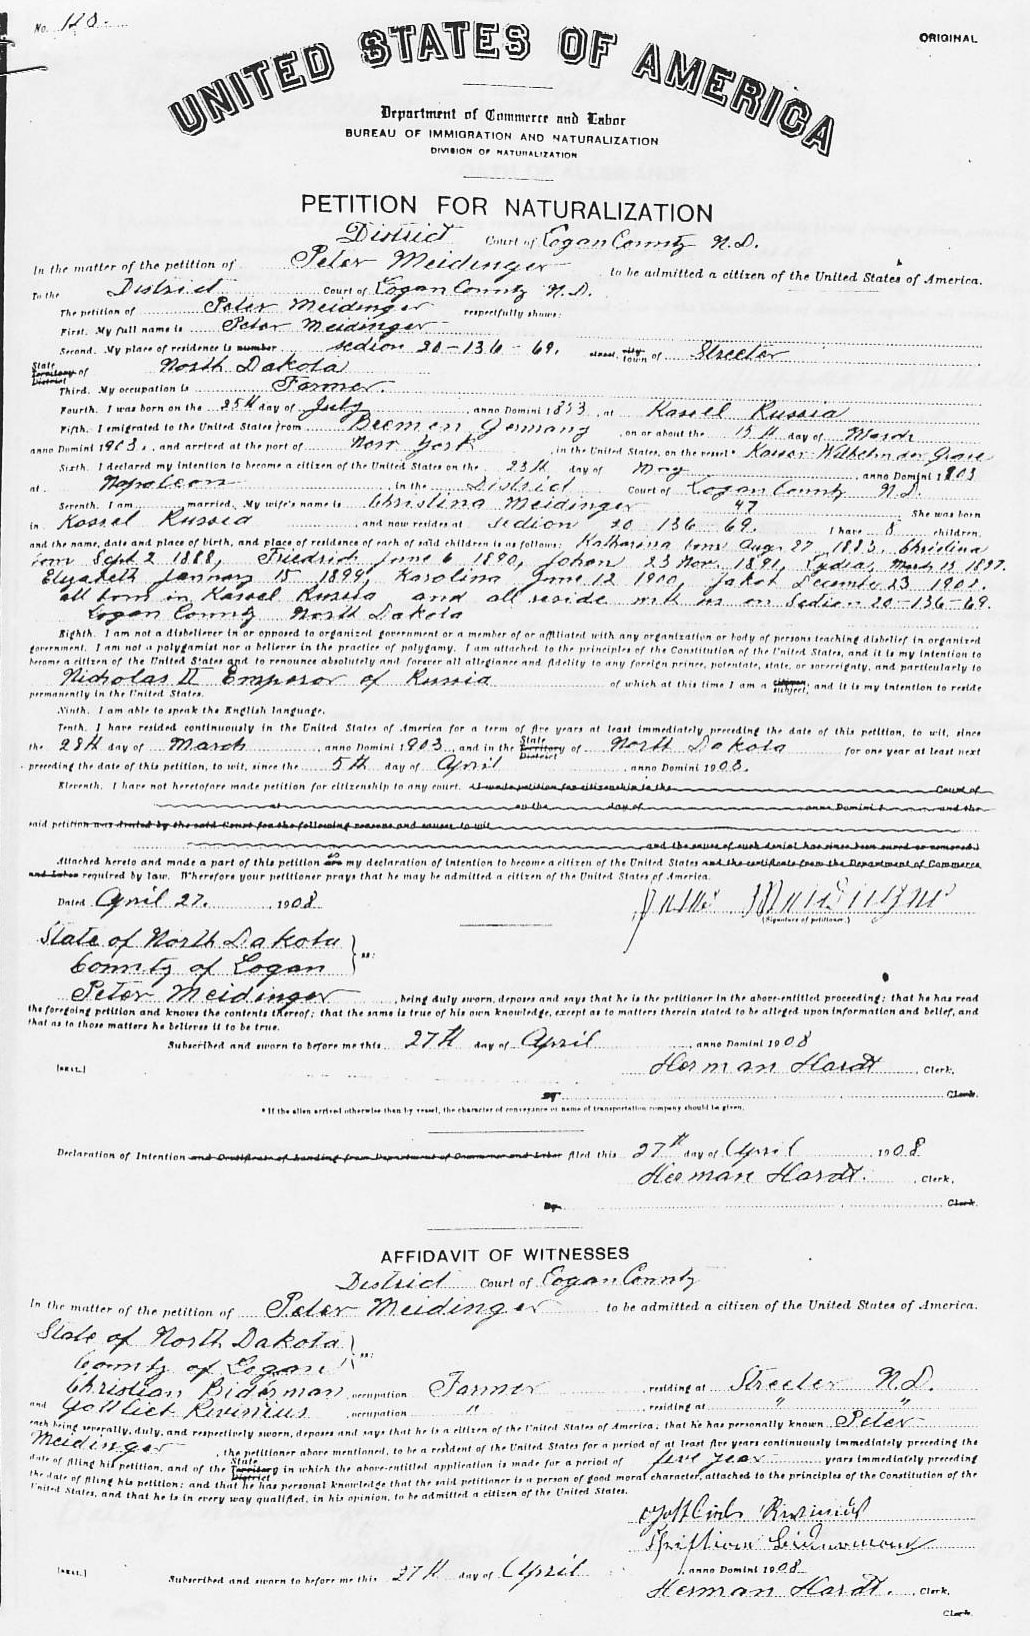 No. 120
ORIGINAL
UNITED STATES OF AMERICA
Department of Commerce and Labor
BUREAU OF IMMIGRATION AND NATURALIZATION
DIVISION OF NATURALIZATION
PETITION FOR NATURALIZATION
District Court of Logan County N.D.
In the matter of the petition of Peter Meidinger to be admitted a citizen of the United States of America.
To the District Court of Logan County N.D.
The petition of Peter Meidinger respectfully shows:
First. My full name is Peter Meidinger
Second. My place of residence is number section 20-136-69. street, city town of Streeter
State Territory District of North Dakota
Third. My occupation is Farmer.
Fourth. I was born on the 25th day of July, anno Domini 1853, at Kassel Russia
Fifth. I emigrated to the United States from Bremen, Germany, on or about the 15th day of March
anno Domini 1903, and arrived at the port of New York, in the United States, on the vessel* Kaiser Wilhelm der Grose
Sixth. I declared my intention to become a citizen of the United States on the 23th day of May, anno Domini 1903
at Napoleon, in the District Court of Logan County N.D.
Seventh. I am married. My wife's name is Christina Meidinger 47 She was born
in Kassel Russia and now resides at section 20 136-69. I have 8 children,
and the name, date and place of birth, and place of residence of each of said children is as follows: Katharina born Aug. 27, 1883, Christina
born Sept 2 1888, Friedrich June 6 1890, Johan 23 Nov. 1891, Lydia, March 13 1897.
Elyabeth January 15 1899, Karolina June 12 1900, Jakob December 23 1902.
all born in Kassel Russia and all reside with us on Section 20-136-69.
Logan County North Dakota
Eighth. I am not a disbeliever in or opposed to organized government or a member of or affiliated with any organization or body of persons teaching disbelief in organized
government. I am not a polygamist nor a believer in the practice of polygamy. I am attached to the principles of the Constitution of the United States, and it is my intention to
become a citizen of the United States and to renounce absolutely and forever all allegiance and fidelity to any foreign prince, potentate, state, or sovereignty, and particularly to
Nicholas II Emperor of Russia of which at this time I am a citizen subject; and it is my intention to reside
permanently in the United States.
Ninth. I am able to speak the English language.
Tenth. I have resided continuously in the United States of America for a term of five years at least immediately preceding the date of this petition, to wit, since
the 28th day of March, anno Domini 1903, and in the State Territory District of North Dakota for one year at least next
preceding the date of this petition, to wit, since the 5th day of April anno Domini 1908.
Eleventh. I have not heretofore made petition for citizenship to any court. (I made petition for citizenship to the Court of
at on the day of anno Domini 1 and the
said petition was denied by the said Court for the following reasons and causes to wit
and the cause of such denial has since been cured or removed.)
Attached hereto and made a part of this petition are is my declaration of intention to become a citizen of the United States and the certificate from the Department of Commerce
and Labor required by law. Wherefore your petitioner prays that he may be admitted a citizen of the United States of America.
Dated April 27, 1908
(Signature of petitioner.)
State of North Dakota
County of Logan } ss:
Peter Meidinger, being duly sworn, deposes and says that he is the petitioner in the above-entitled proceeding; that he has read
the foregoing petition and knows the contents thereof; that the same is true of his own knowledge, except as to matters therein stated to be alleged upon information and belief, and
that as to those matters he believes it to be true.
Subscribed and sworn to before me this 27th day of April, anno Domini 1908
[SEAL.] Herman Hardt, Clerk.
By Clerk.
* If the alien arrived otherwise than by vessel, the character of conveyance or name of transportation company should be given.
Declaration of Intention and Certificate of Landing from Department of Commerce and Labor filed this 27th day of April 1908
Herman Hardt. Clerk.
By Clerk.
AFFIDAVIT OF WITNESSES
District Court of Logan County
In the matter of the petition of Peter Meidinger to be admitted a citizen of the United States of America.
State of North Dakota
County of Logan } ss:
Christian Biderman, occupation Farmer, residing at Streeter N.D.
and Gottlieb Rivinius, occupation ", residing at " "
each being severally, duly, and respectively sworn, deposes and says that he is a citizen of the United States of America; that he has personally known Peter
Meidinger, the petitioner above mentioned, to be a resident of the United States for a period of at least five years continuously immediately preceding the
date of filing his petition, and of the State Territory District in which the above-entitled application is made for a period of five year years immediately preceding
the date of filing his petition; and that he has personal knowledge that the said petitioner is a person of good moral character, attached to the principles of the Constitution of the
United States, and that he is in every way qualified, in his opinion, to be admitted a citizen of the United States.
Gottlieb Rivinius
[SEAL.] Subscribed and sworn to before me this 27th day of April, anno Domini 1908
Herman Hardt. Clerk.
Clerk